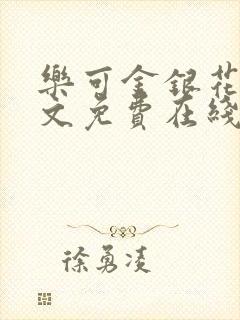 樂可金銀花
文免費在綫
徐勇凌